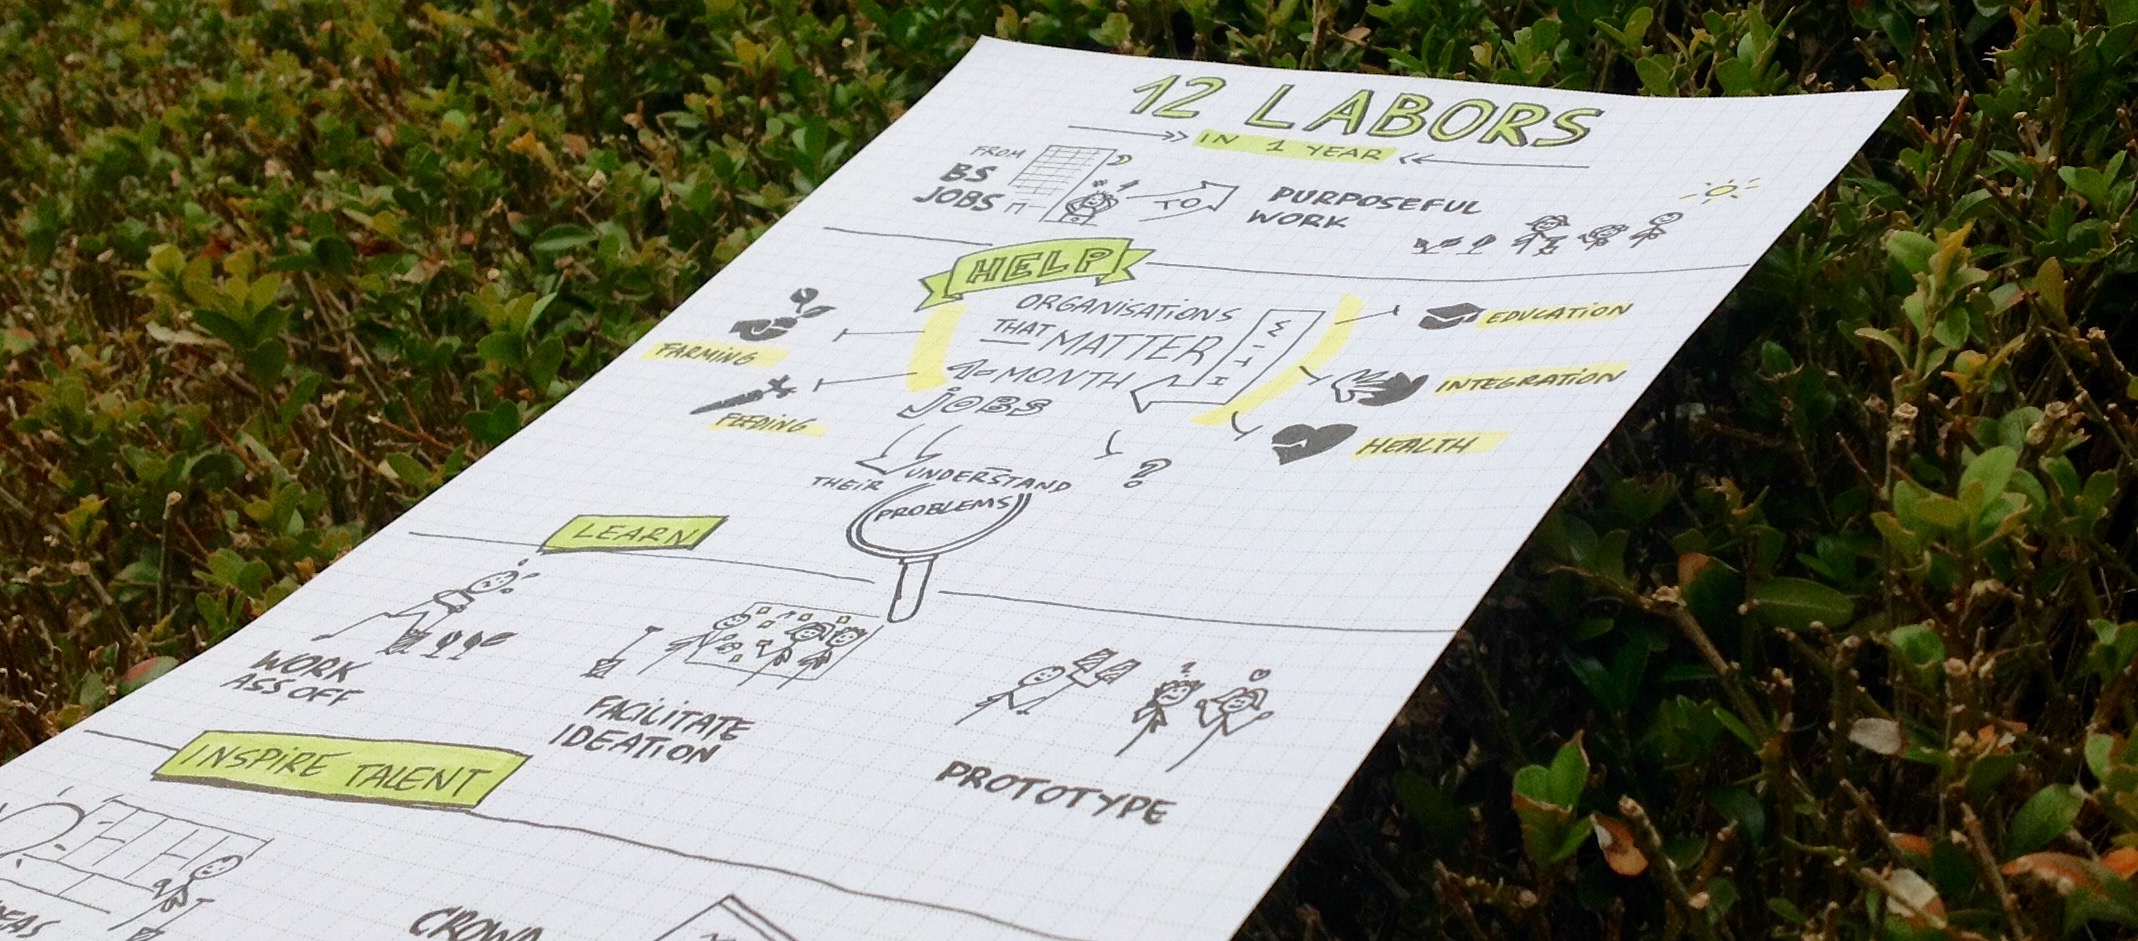 12 LABORS
IN 1 YEAR
FROM
BS
JOBS
TO
PURPOSEFUL
WORK
HELP
ORGANISATIONS
THAT MATTER
WITH
1-MONTH
JOBS
FARMING
FEEDING
EDUCATION
INTEGRATION
HEALTH
?
UNDERSTAND
THEIR
PROBLEMS
LEARN
WORK
ASS OFF
FACILITATE
IDEATION
PROTOTYPE
INSPIRE TALENT
CROWD